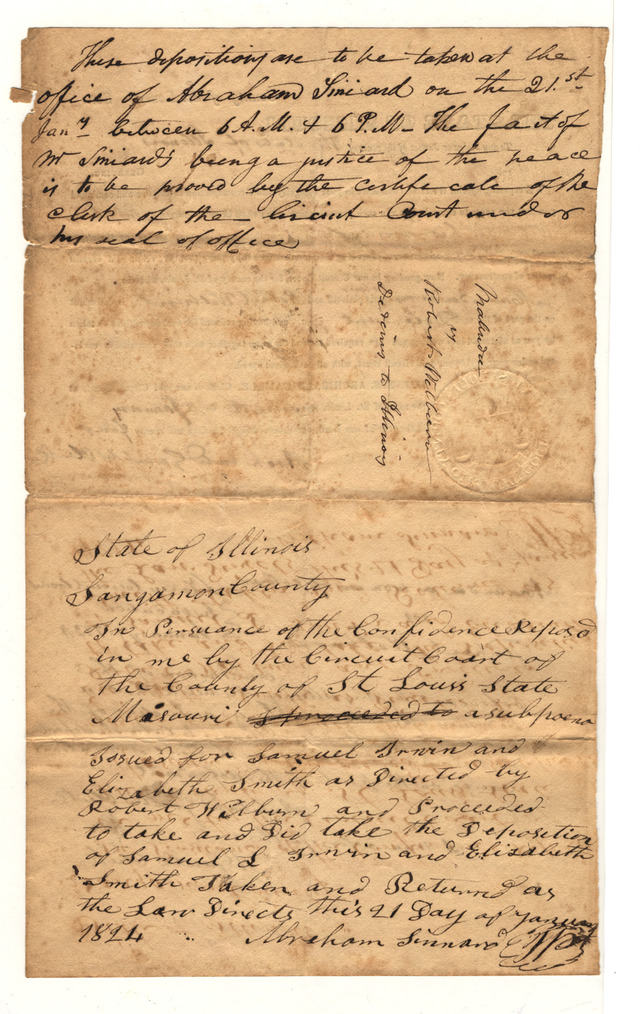 These depositions are to be taken at the
office of Abraham Siniard on the 21.st
Jany between 6 A.M. & 6 P.M. The fact of
Mr Siniard's being a justice of the peace
is to be proved by the certificate of the
clerk of the Circuit Court under
his seal of office
Malinda
vs
Robert Wilburn
Dedimus to Illinois
State of Illinois
Sangamon County
In Persuance of the Confidence Reposed
in me by the Circuit Court of
the County of St Louis State
Misouri I proceeded to a subpoena
Issued for Samuel Irwin and
Elizabeth Smith as Directed by
Robert Wilburn and Proceeded
to take and Did take the Deposition
of Samuel L Irwin and Elisabeth
Smith Taken and Returnd as
the Law Directs this 21 Day of January
1824 Abraham Sinnard JP